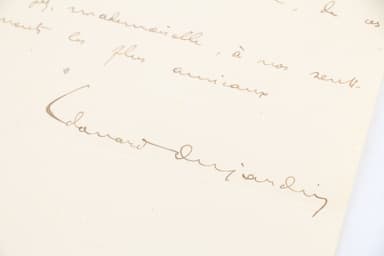 , de ces
mademoiselle, à nos senti-
ments les plus amicaux
Edouard Dujardin